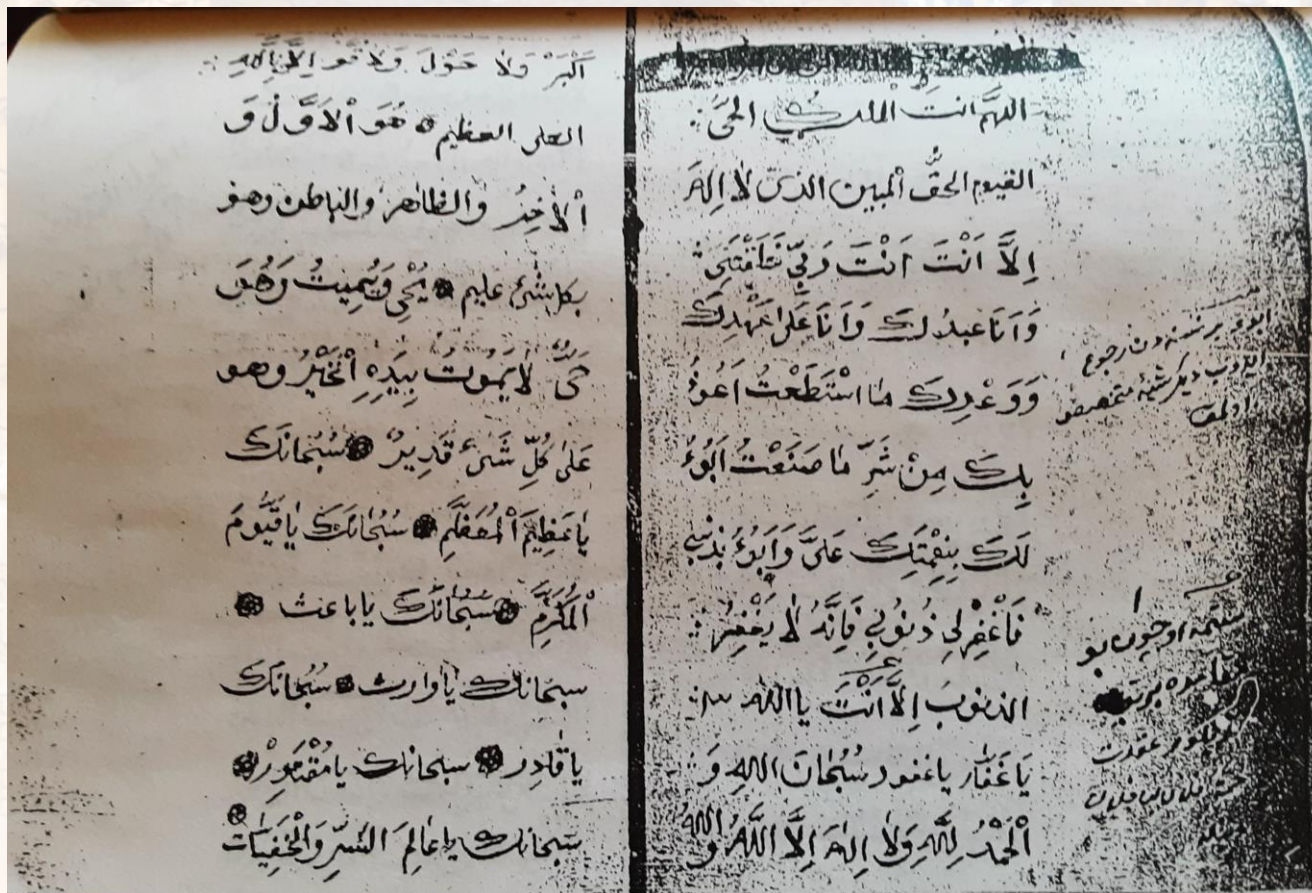 اللهم انت الملك الحى
القيوم الحق المبين الذى لا اله
اِلَّا اَنْتَ اَنْتَ رَبِّى خَلَقْتَنِى
وَ اَنَا عَبْدُكَ وَ اَنَا عَلٰى عَهْدِكَ
وَ وَعْدِكَ مَا اسْتَطَعْتُ اَعُوذُ
بِكَ مِنْ شَرِّ مَا صَنَعْتُ اَبُوءُ
لَكَ بِنِعْمَتِكَ عَلَىَّ وَ اَبُوءُ بِذَنْبِى
فَاغْفِرْلِى ذُنُوبِى فَاِنَّهُ لَا يَغْفِرُ
الذنوبَ اِلَّا اَنْتَ يا الله
يَا غَفَّار يا غفور سُبْحَانَ اللهِ وَ
اَلْحَمْدُ لِلّٰهِ وَلَا اِلٰهَ اِلَّا اللهُ وَاللهُ
ابوء
رجوع
متخصص
اولمق
بو
اَكْبَرْ وَلَا حَوْلَ وَلَا قوة اِلَّا بِاللهِ
العلى العظيم هُوَ الْاَوَّلُ وَ
الْاٰخِرُ وَالظاهر والباطن وهو
بكل شئ عليم يُحْيِى وَيُمِيتُ وَهُوَ
حَىٌّ لَا يَمُوتُ بِيَدِهِ الْخَيْرُ وهو
عَلٰى كُلِّ شَىْءٍ قَدِيرٌ سُبْحَانَكَ
يَا عَظِيمَ الْمُعَظَّمِ سُبْحَانَكَ يَا قَيُّومَ
الْمُكَرَّمِ سُبْحَانَكَ يا باعث
سبحانك يا وارث سُبْحَانَكَ
يا قَادِر سبحانك يا مُقْتَدِرْ
سبحانك يا عَالِمَ السِّرِّ وَالْخَفِيَّاتِ